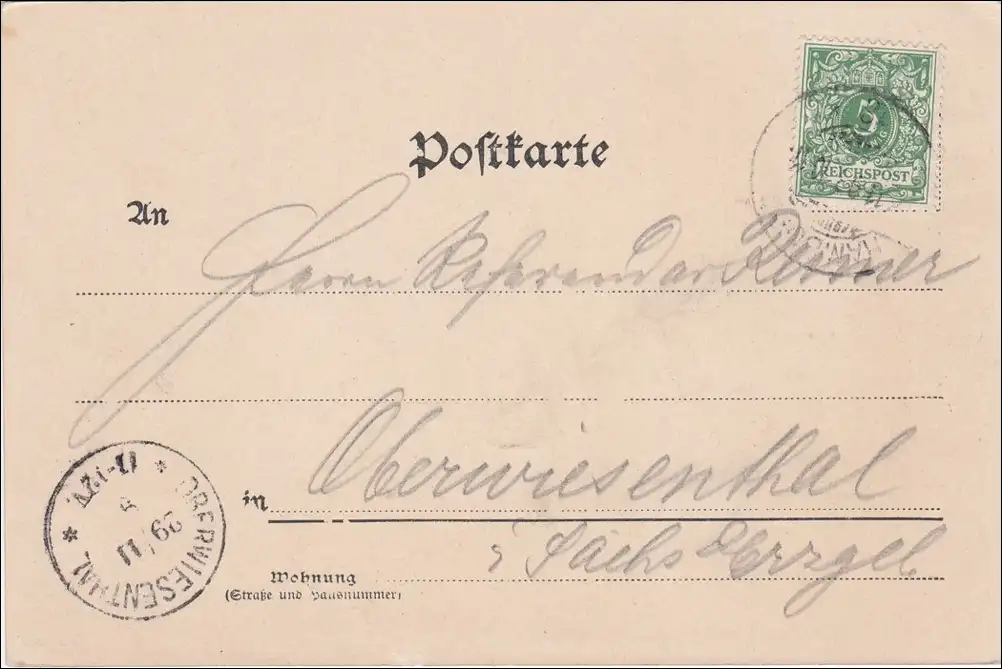 Postkarte
5
REICHSPOST
An
Herrn Referendar
in Oberwiesenthal
Sächs Erzgeb
Wohnung
(Straße und Hausnummer)
OBERWIESENTHAL
29/11
11-12V.